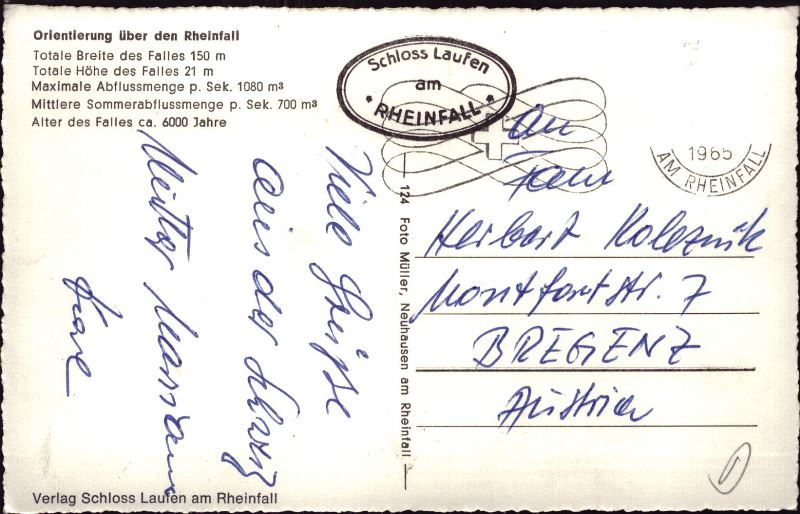 Orientierung über den Rheinfall
Totale Breite des Falles 150 m
Totale Höhe des Falles 21 m
Maximale Abflussmenge p. Sek. 1080 m³
Mittlere Sommerabflussmenge p. Sek. 700 m³
Alter des Falles ca. 6000 Jahre
Schloss Laufen
am
* RHEINFALL *
1965
AM RHEINFALL
Viele Grüsse
aus der Schweiz
Mutter
124 Foto Müller, Neuhausen am Rheinfall
An
Fam
Herbert Koleznik
Montfortstr. 7
BREGENZ
Austria
Verlag Schloss Laufen am Rheinfall